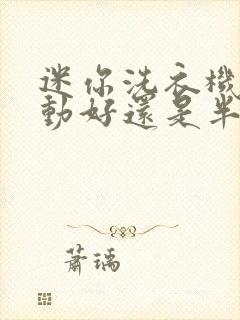 迷你洗衣機
動好還是半
蕭瑀